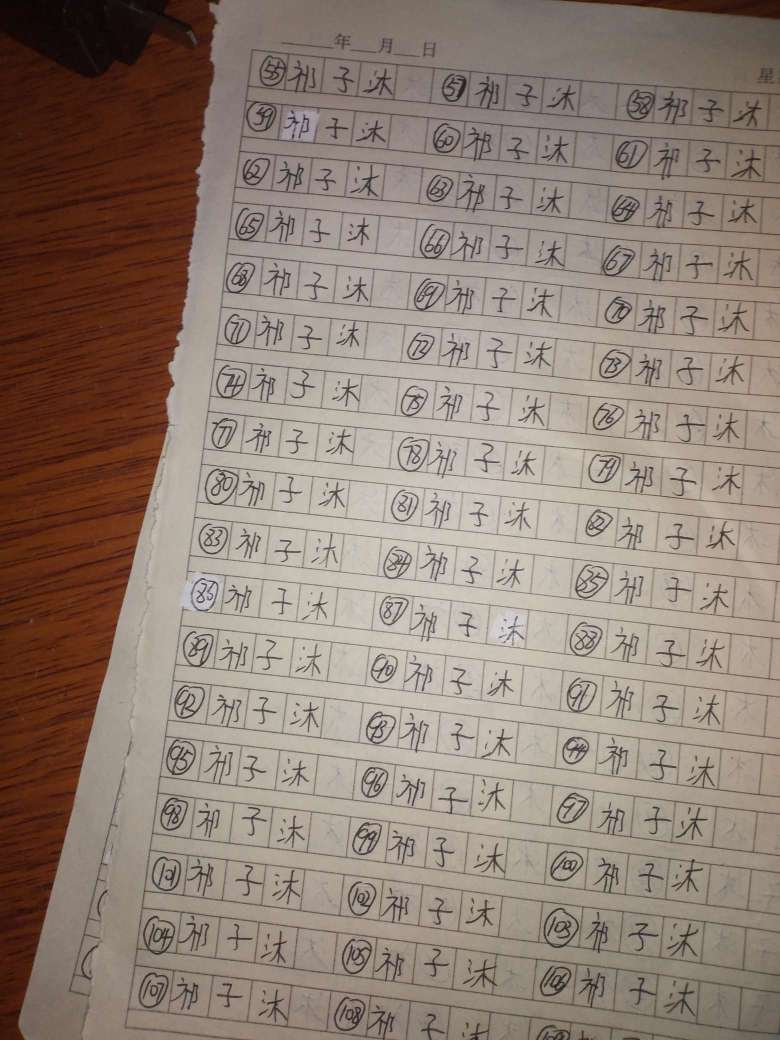 年 月 日
星
㊺ 祁子沐 57 祁子沐 58 祁子沐
59 祁子沐 60 祁子沐 61 祁子沐
62 祁子沐 63 祁子沐 64 祁子沐
65 祁子沐 66 祁子沐 67 祁子沐
68 祁子沐 69 祁子沐 70 祁子沐
71 祁子沐 72 祁子沐 73 祁子沐
74 祁子沐 75 祁子沐 76 祁子沐
77 祁子沐 78 祁子沐 79 祁子沐
80 祁子沐 81 祁子沐 82 祁子沐
83 祁子沐 84 祁子沐 85 祁子沐
86 祁子沐 87 祁子沐 88 祁子沐
89 祁子沐 90 祁子沐 91 祁子沐
92 祁子沐 93 祁子沐 94 祁子沐
95 祁子沐 96 祁子沐 97 祁子沐
98 祁子沐 99 祁子沐 100 祁子沐
101 祁子沐 102 祁子沐 103 祁子沐
104 祁子沐 105 祁子沐 106 祁子沐
107 祁子沐 108 祁子沐